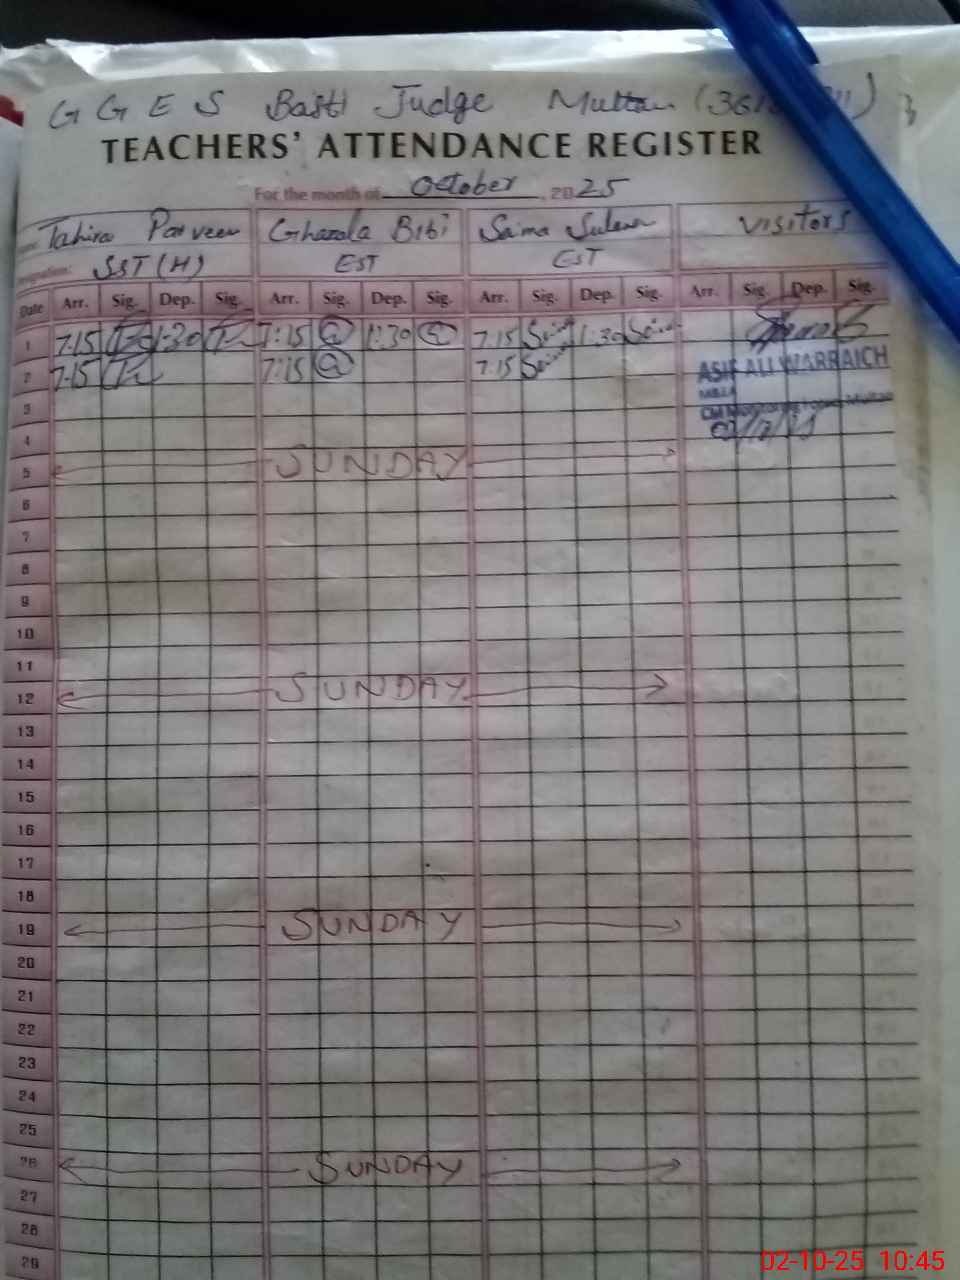 G G E S Basti Judge Multan (36
TEACHERS' ATTENDANCE REGISTER
For the month of October, 2025
Tahira Parveen Ghazala Bibi Saima VISITORS
SST (H) EST EST
Date Arr. Sig. Dep. Sig. Arr. Sig. Dep. Sig. Arr. Sig. Dep. Sig. Arr. Sig. Dep. Sig.
1 7:15 1:30 7:15 1:30 7:15 1:30
2 7:15 7:15 7:15
ASIF ALI WARRAICH
3
4
5 SUNDAY
6
7
8
9
10
11
12 SUNDAY
13
14
15
16
17
18
19 SUNDAY
20
21
22
23
24
25
26 SUNDAY
27
28
29
02-10-25 10:45